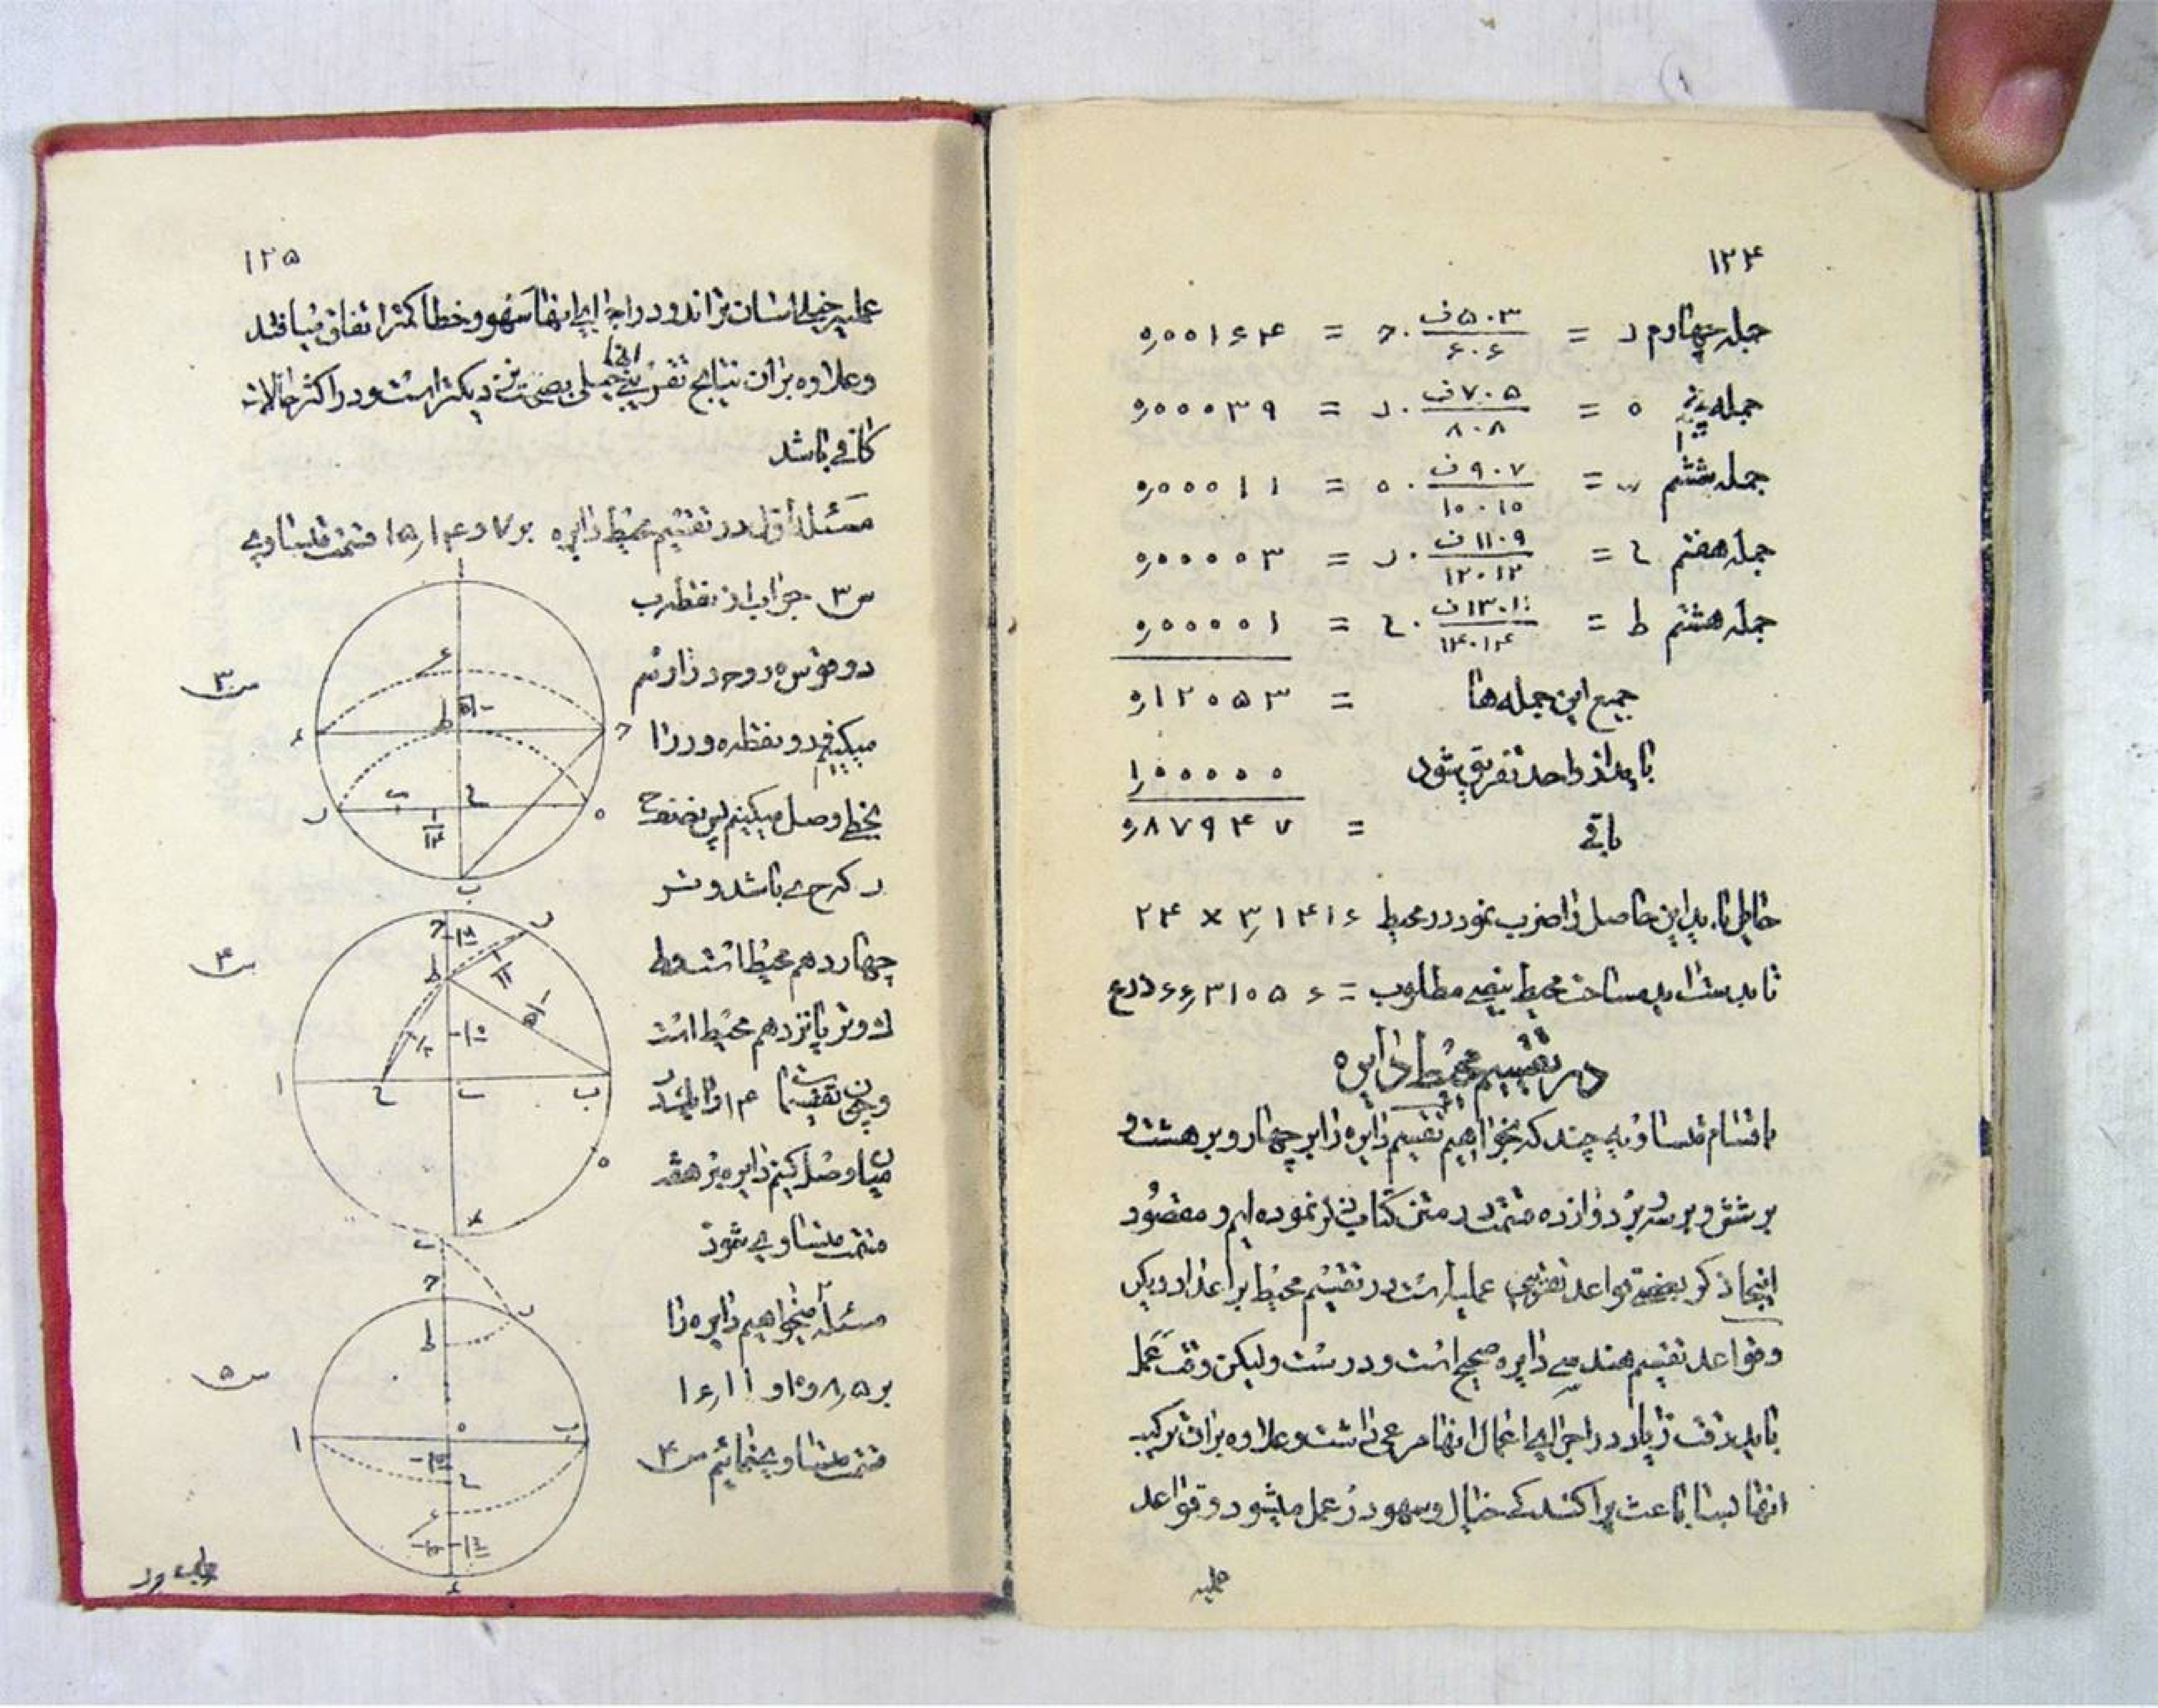 ۱۲۴
جمله چهارم د = ۵۰۳ف / ۶۰۶ · ح = ۰٫۰۰۱۶۴
جمله پنجم ه = ۷۰۵ف / ۸۰۸ · د = ۰٫۰۰۰۳۹
جمله ششم = ۹۰۷ف / ۱۰۰۱۰ · ه = ۰٫۰۰۰۱۱
جمله هفتم ح = ۱۱۰۹ف / ۱۲۰۱۲ · ر = ۰٫۰۰۰۰۳
جمله هشتم ط = ۱۳۰۱۱ف / ۱۴۰۱۴ · ح = ۰٫۰۰۰۰۱
جمیع این جمله ها = ۰٫۱۲۰۵۳
باید از واحد تفریق شود ۱٫۰۰۰۰۰
باقی = ۰٫۸۷۹۴۷
حال باید این حاصل را ضرب نمود در محیط ۲۴ × ۳٫۱۴۱۶
تا بدست آید مساحت محیط بیضی مطلوب = ۶۶٫۳۱۰۵۶ ذرع
در تقسیم محیط دایره
باقسام متساویه چند که بخواهیم تقسیم دایره را بر چهار و بر هشت و
بر شش و بر سه و بر دوازده قسمت در متن کتاب ذکر نموده ایم و مقصود
اینجا ذکر بعضی قواعد تقریبی عملیه است در تقسیم محیط بر اعداد دیگر
و قواعد تقسیم هندسی دایره صحیح است و درست ولیکن وقت عمل
باید دقت زیاد در اجرای اعمال انها مرعی داشت و علاوه بران ترکیب
انها بسا باعث پراکندگی خیال و سهو در عمل میشود و قواعد
عملیه
۱۲۵
عملیه خیلی اسان تراند و در اجرای انها سهو و خطا کمتر اتفاق میافتد
و علاوه بران نتایج تقریبی انها خیلی بصحت نزدیکتر است و در اکثر حالات
کافی باشد
مسئله اول در تقسیم محیط دایره بر ۷ و ۱۴ و ۱۵ قسمت متساوی
س ۳ جواب از نقطه ب
دو قوس ه ر و ح د را رسم
میکنیم و دو نقطه ه و ر را
بخطی وصل میکنیم پس نصف ه
ر که ح ی باشد وتر
چهاردهم محیط است و ط
ک وتر پانزدهم محیط است
و چون تقسیمات ۱۴ را یک در
میان وصل کنیم دایره بر هفت
قسمت متساوی شود
مسئله میخواهیم دایره را
بر ۵ و ۸ و ۱۰ و ۱۱ و ۱۶
قسمت متساوی نمائیم س ۴
س ۳
س ۴
س ۵